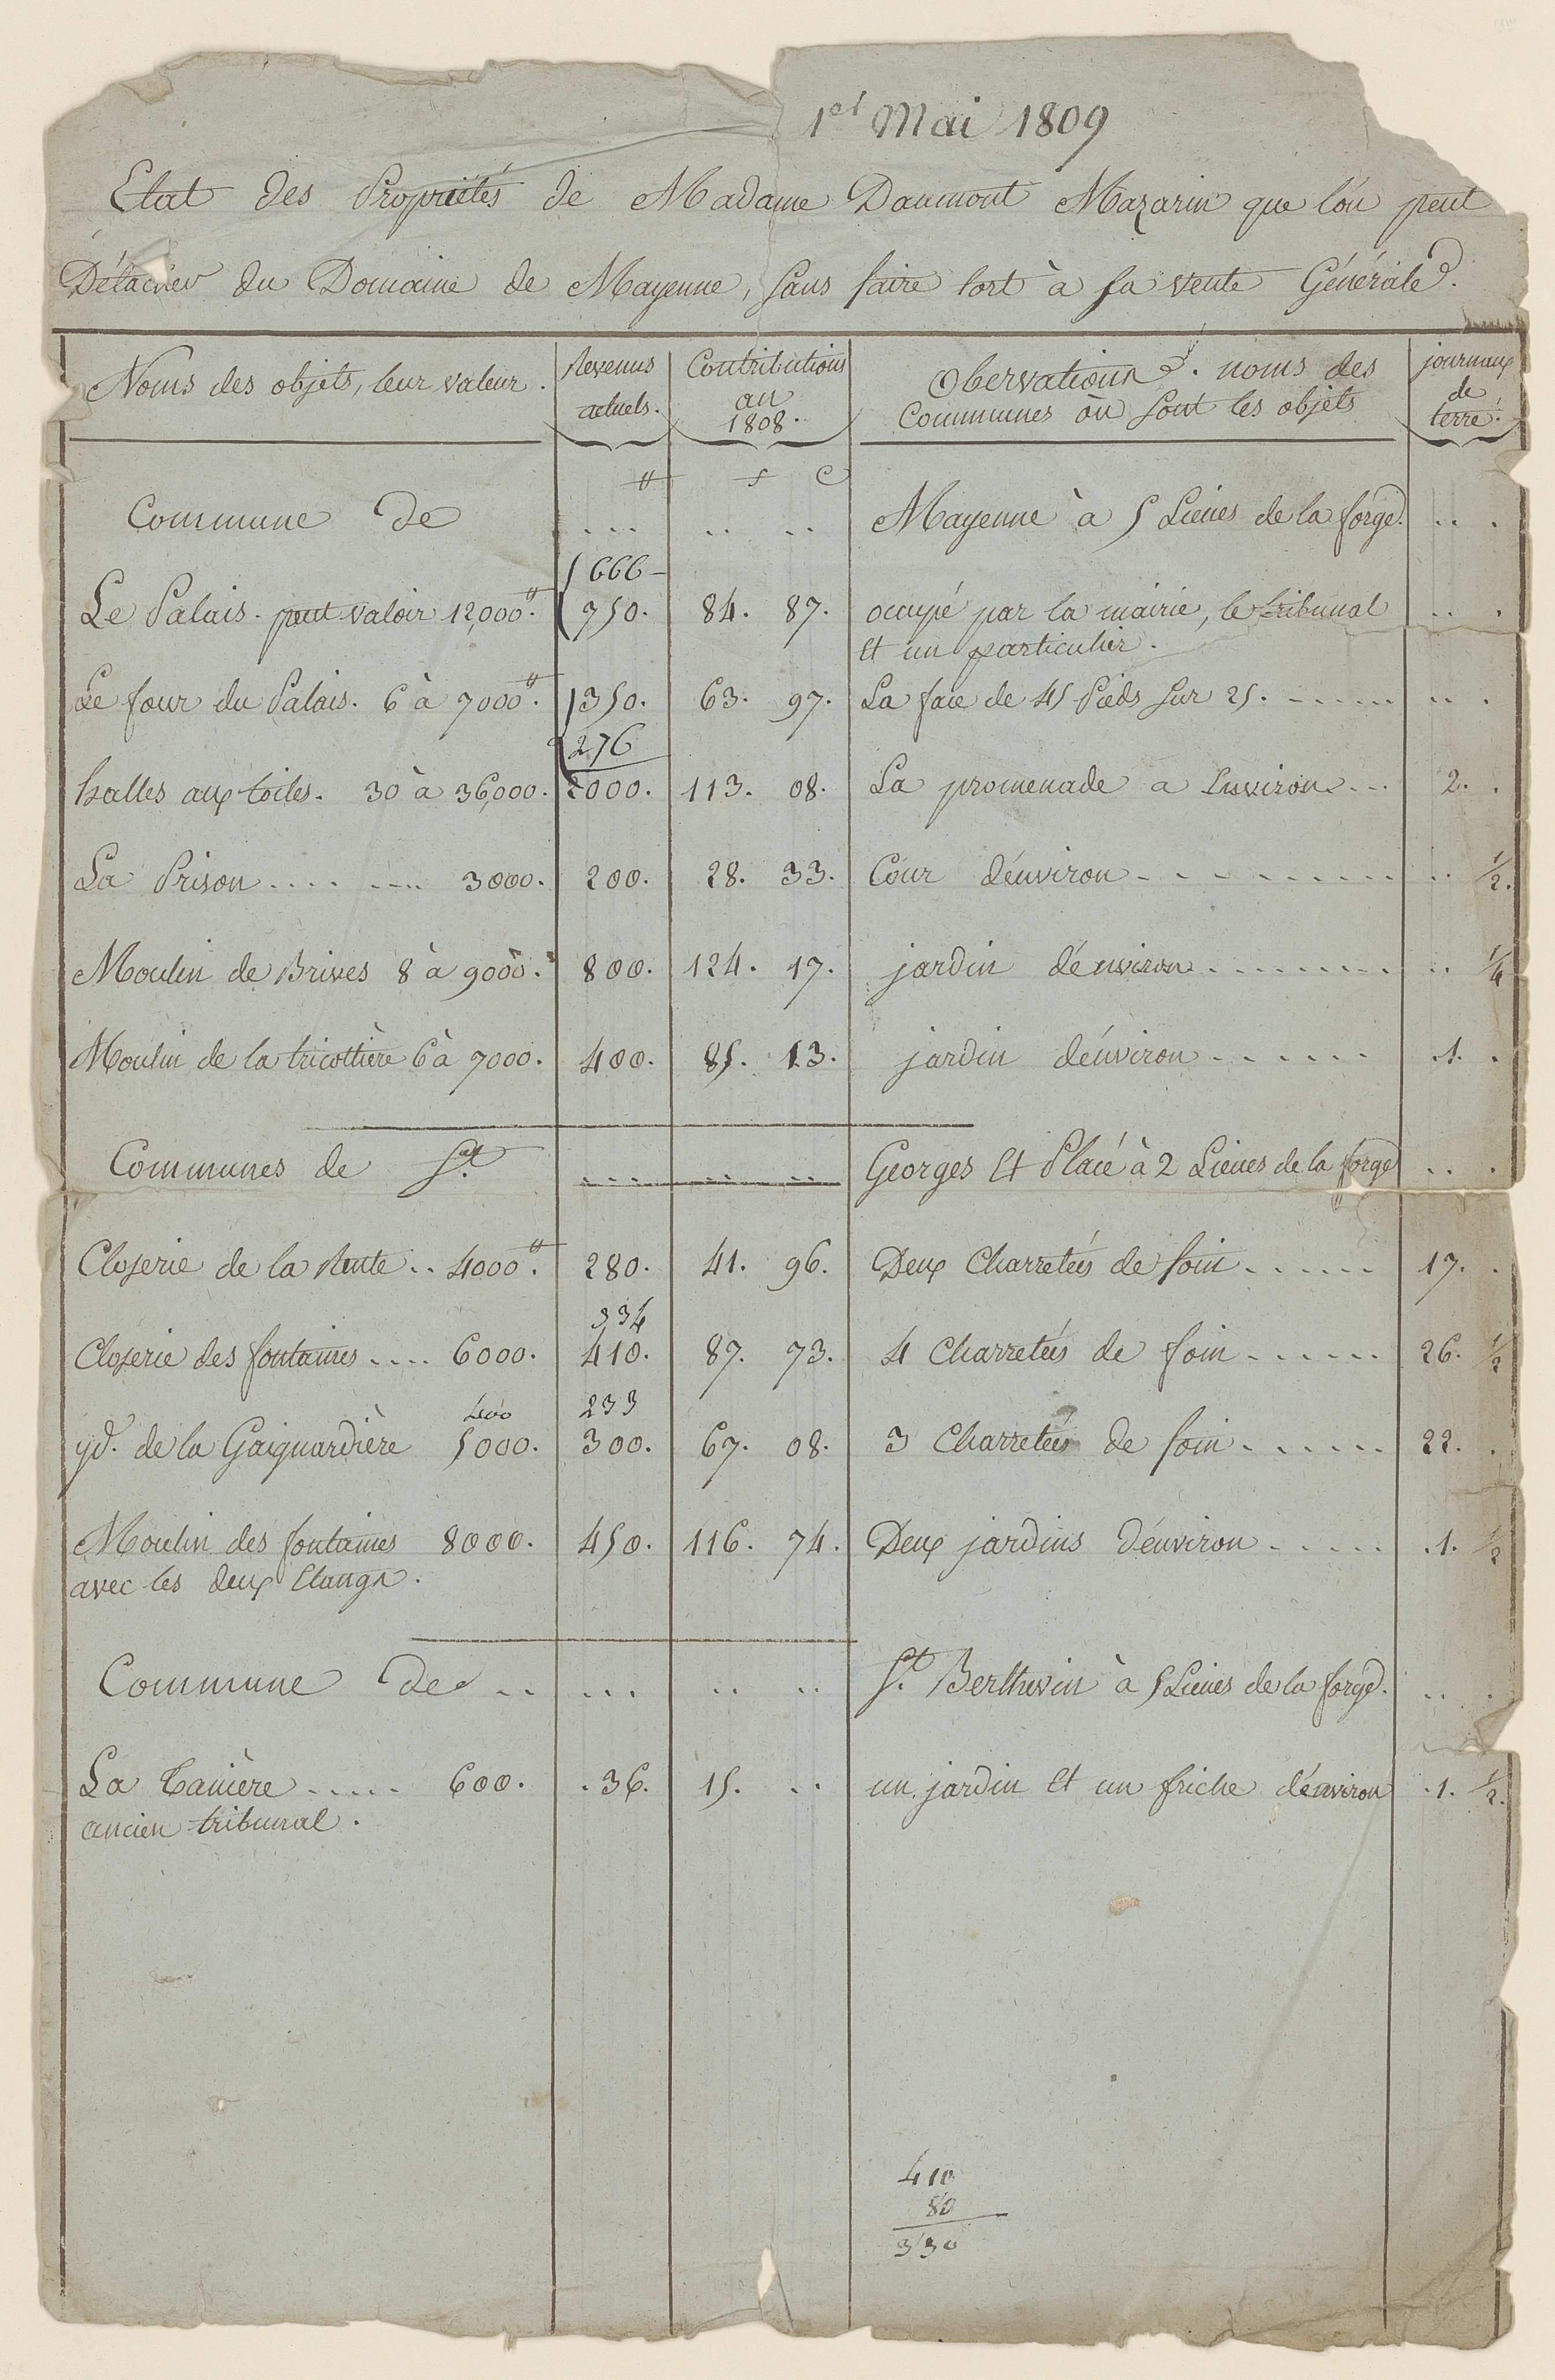 1er Mai 1809
Etat des Propriétés de Madame Daumont Mazarin que l'on peut
Détacher du Domaine de Mayenne, sans faire tort à sa vente Générale.
Noms des objets, leur valeur. Revenus actuels. Contributions an 1808. Obervations. noms des Communes où sont les objets journaux de terre.
# f c
Commune de ... .. .. Mayenne à 5 Lieues de la forge. .. .
1666-
Le Palais. peut valoir 12,000#. 750. 84. 87. occupé par la mairie, le tribunal .. .
et un particulier.
Le four du Palais. 6 à 7000#. 1350. 63. 97. La face de 45 Pieds sur 25. ------ .. .
276
halles aux toiles. 30 à 36,000. 2000. 113. 08. La promenade a Environ --- 2. .
La Prison .... .... 3000. 200. 28. 33. Cour d'environ --------- .. 1/2.
Moulin de Brives 8 à 9000. 800. 124. 17. jardin d'environ ........ .. 1/4
Moulin de la tricottière 6 à 7000. 400. 85. 13. jardin d'environ ...... .1. .
Communes de St. ... .. .. Georges Et Placé à 2 Lieues de la forge .. .
Closerie de la Rente .. 4000#. 280. 41. 96. Deux Charretées de foin ...... 17. .
334
Closerie des fontaines .... 6000. 410. 87. 73. 4 Charretées de foin ...... 26. 1/2
400 233
yd. de la Gaignardière 5000. 300. 67. 08. 3 Charretées de foin ...... 22. .
Moulin des fontaines 8000. 450. 116. 74. Deux jardins d'environ ..... .1. 1/2
avec les deux Etangs.
Commune de .. ... .. .. St. Berthevin à 5 Lieues de la forge. .. .
La Tanière ..... 600. .36. 15. .. un jardin Et un friche d'environ .1. 1/2.
ancien tribunal.
410
80
330